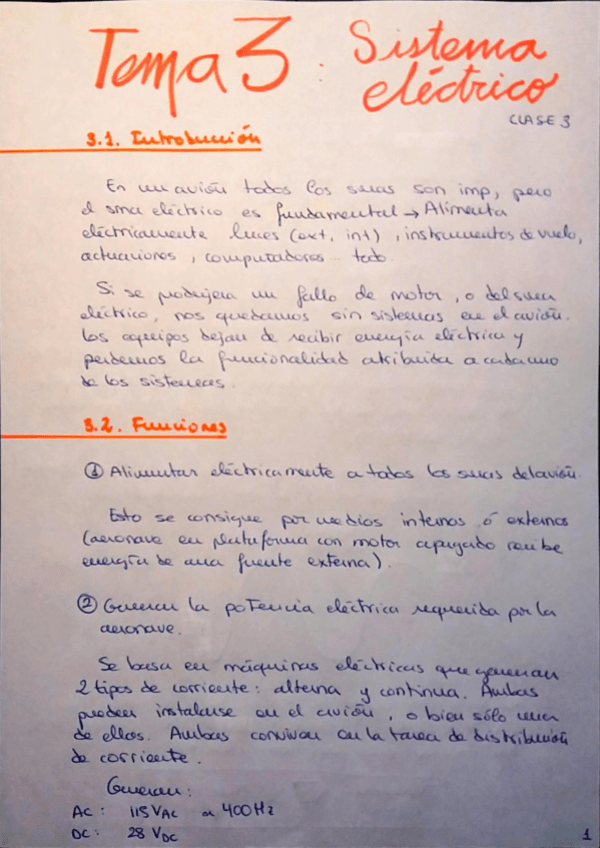 Tema 3 : Sistema
eléctrico
CLASE 3
3.1. Introducción
En un avión todos los smas son imp, pero
el sma eléctrico es fundamental → Alimenta
eléctricamente luces (ext, int), instrumentos de vuelo,
actuaciones, computadores... todo.
Si se produjera un fallo de motor, o del sma
eléctrico, nos quedamos sin sistemas en el avión.
Los equipos dejan de recibir energía eléctrica y
perdemos la funcionalidad atribuida a cada uno
de los sistemas.
3.2. Funciones
① Alimentar eléctricamente a todos los smas del avión.
Esto se consigue por medios internos ó externos
(aeronave en plataforma con motor apagado recibe
energía de una fuente externa).
② Generan la potencia eléctrica requerida por la
aeronave.
Se basa en máquinas eléctricas que generan
2 tipos de corriente: alterna y continua. Ambas
pueden instalarse en el avión, o bien sólo una
de ellas. Ambas conviven en la tarea de distribución
de corriente.
Generan:
AC: 115 VAC a 400 Hz
DC: 28 VDC
1